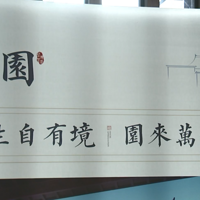 園
生自有境 園來萬